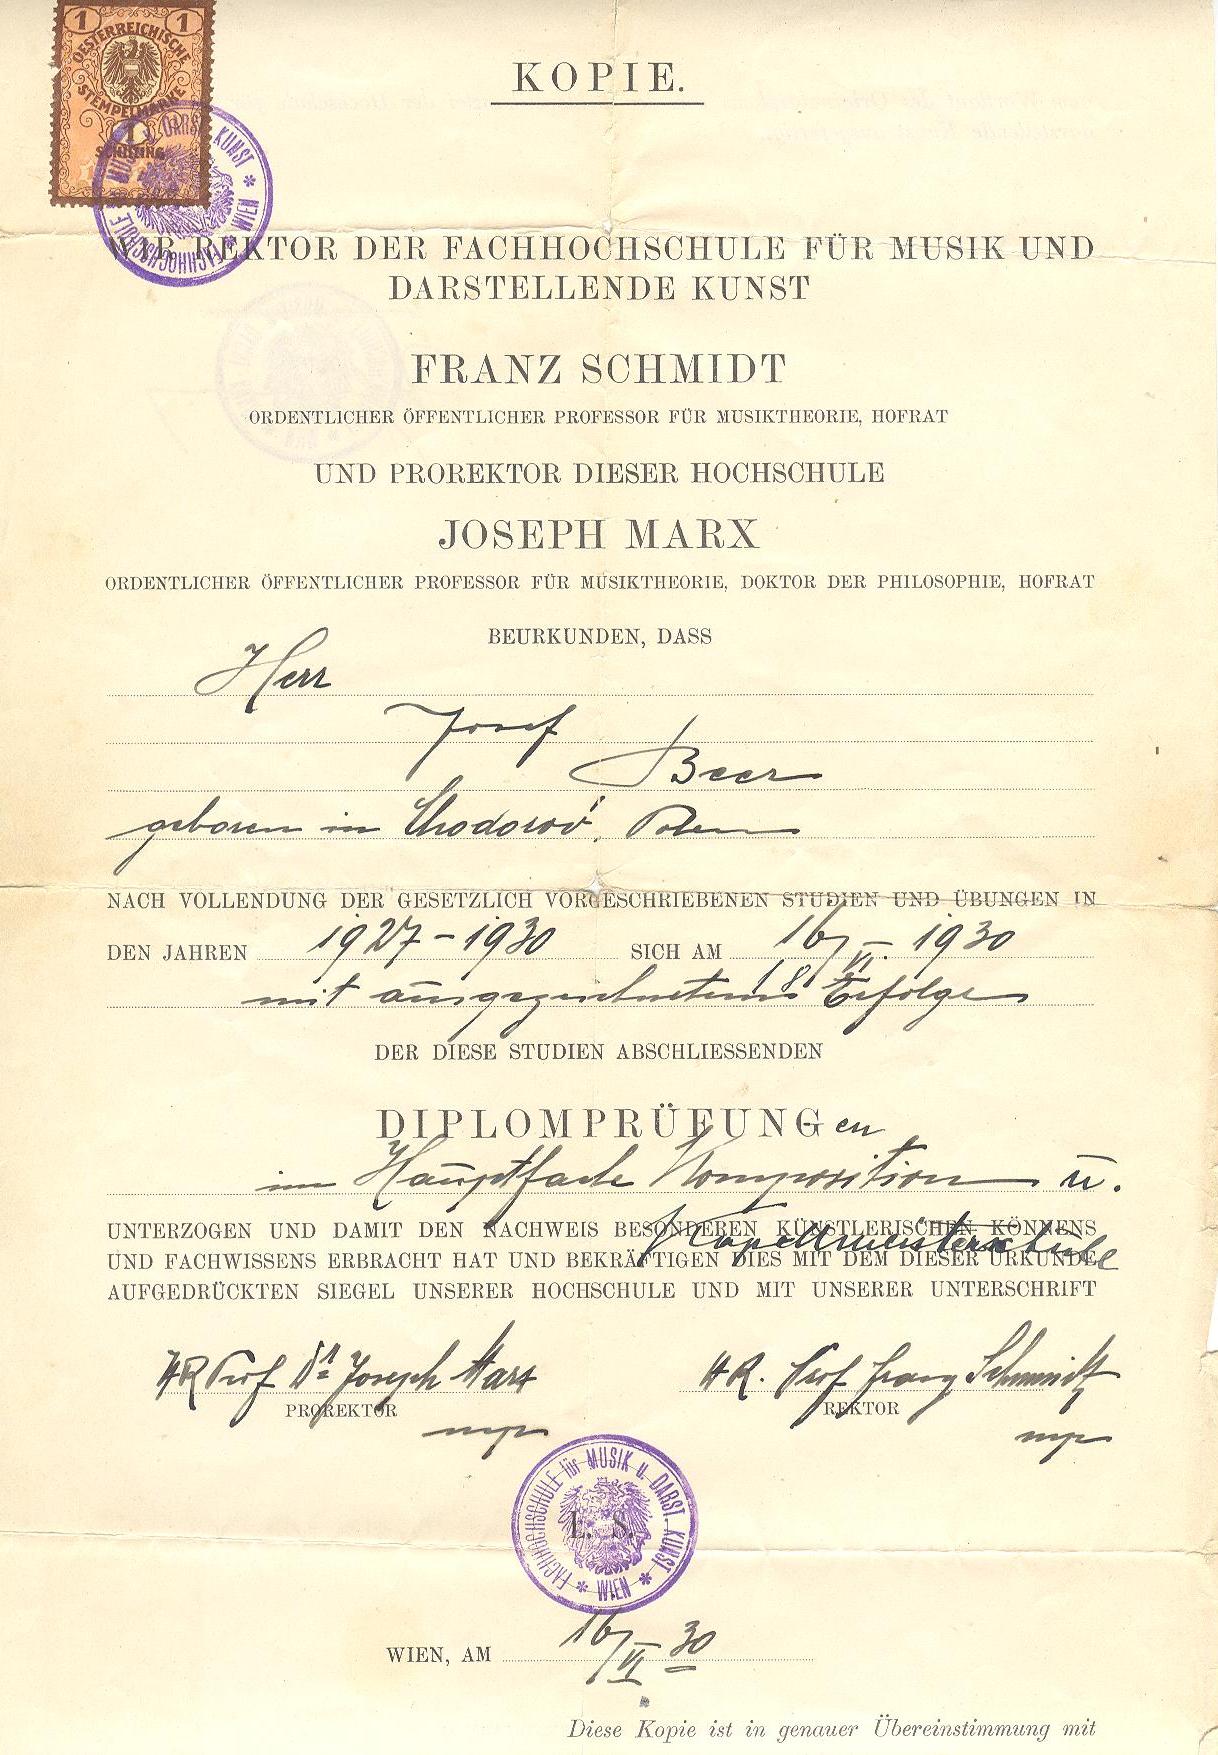 1 1
OESTERREICHISCHE
STEMPELMARKE
1
SCHILLING
FACHHOCHSCHULE MUSIK U. DARST. KUNST * WIEN *
KOPIE.
WIR REKTOR DER FACHHOCHSCHULE FÜR MUSIK UND
DARSTELLENDE KUNST
FRANZ SCHMIDT
ORDENTLICHER ÖFFENTLICHER PROFESSOR FÜR MUSIKTHEORIE, HOFRAT
UND PROREKTOR DIESER HOCHSCHULE
JOSEPH MARX
ORDENTLICHER ÖFFENTLICHER PROFESSOR FÜR MUSIKTHEORIE, DOKTOR DER PHILOSOPHIE, HOFRAT
BEURKUNDEN, DASS
Herr
Josef
Beer
geboren in Chodorów, Polen
NACH VOLLENDUNG DER GESETZLICH VORGESCHRIEBENEN STUDIEN UND ÜBUNGEN IN
DEN JAHREN 1927-1930 SICH AM 16/VI. - 1930
mit ausgezeichnetem Erfolge
DER DIESE STUDIEN ABSCHLIESSENDEN
DIPLOMPRÜFUNGen
im Hauptfache Komposition u.
Kapellmeisterschule
UNTERZOGEN UND DAMIT DEN NACHWEIS BESONDEREN KÜNSTLERISCHEN KÖNNENS
UND FACHWISSENS ERBRACHT HAT UND BEKRÄFTIGEN DIES MIT DEM DIESER URKUNDE
AUFGEDRÜCKTEN SIEGEL UNSERER HOCHSCHULE UND MIT UNSERER UNTERSCHRIFT
HR Prof Dr Joseph Marx HR. Prof Franz Schmidt
PROREKTOR REKTOR
mp mp
FACHHOCHSCHULE für MUSIK u. DARST. KUNST * WIEN *
L. S.
WIEN, AM 16/VI 30
Diese Kopie ist in genauer Übereinstimmung mit